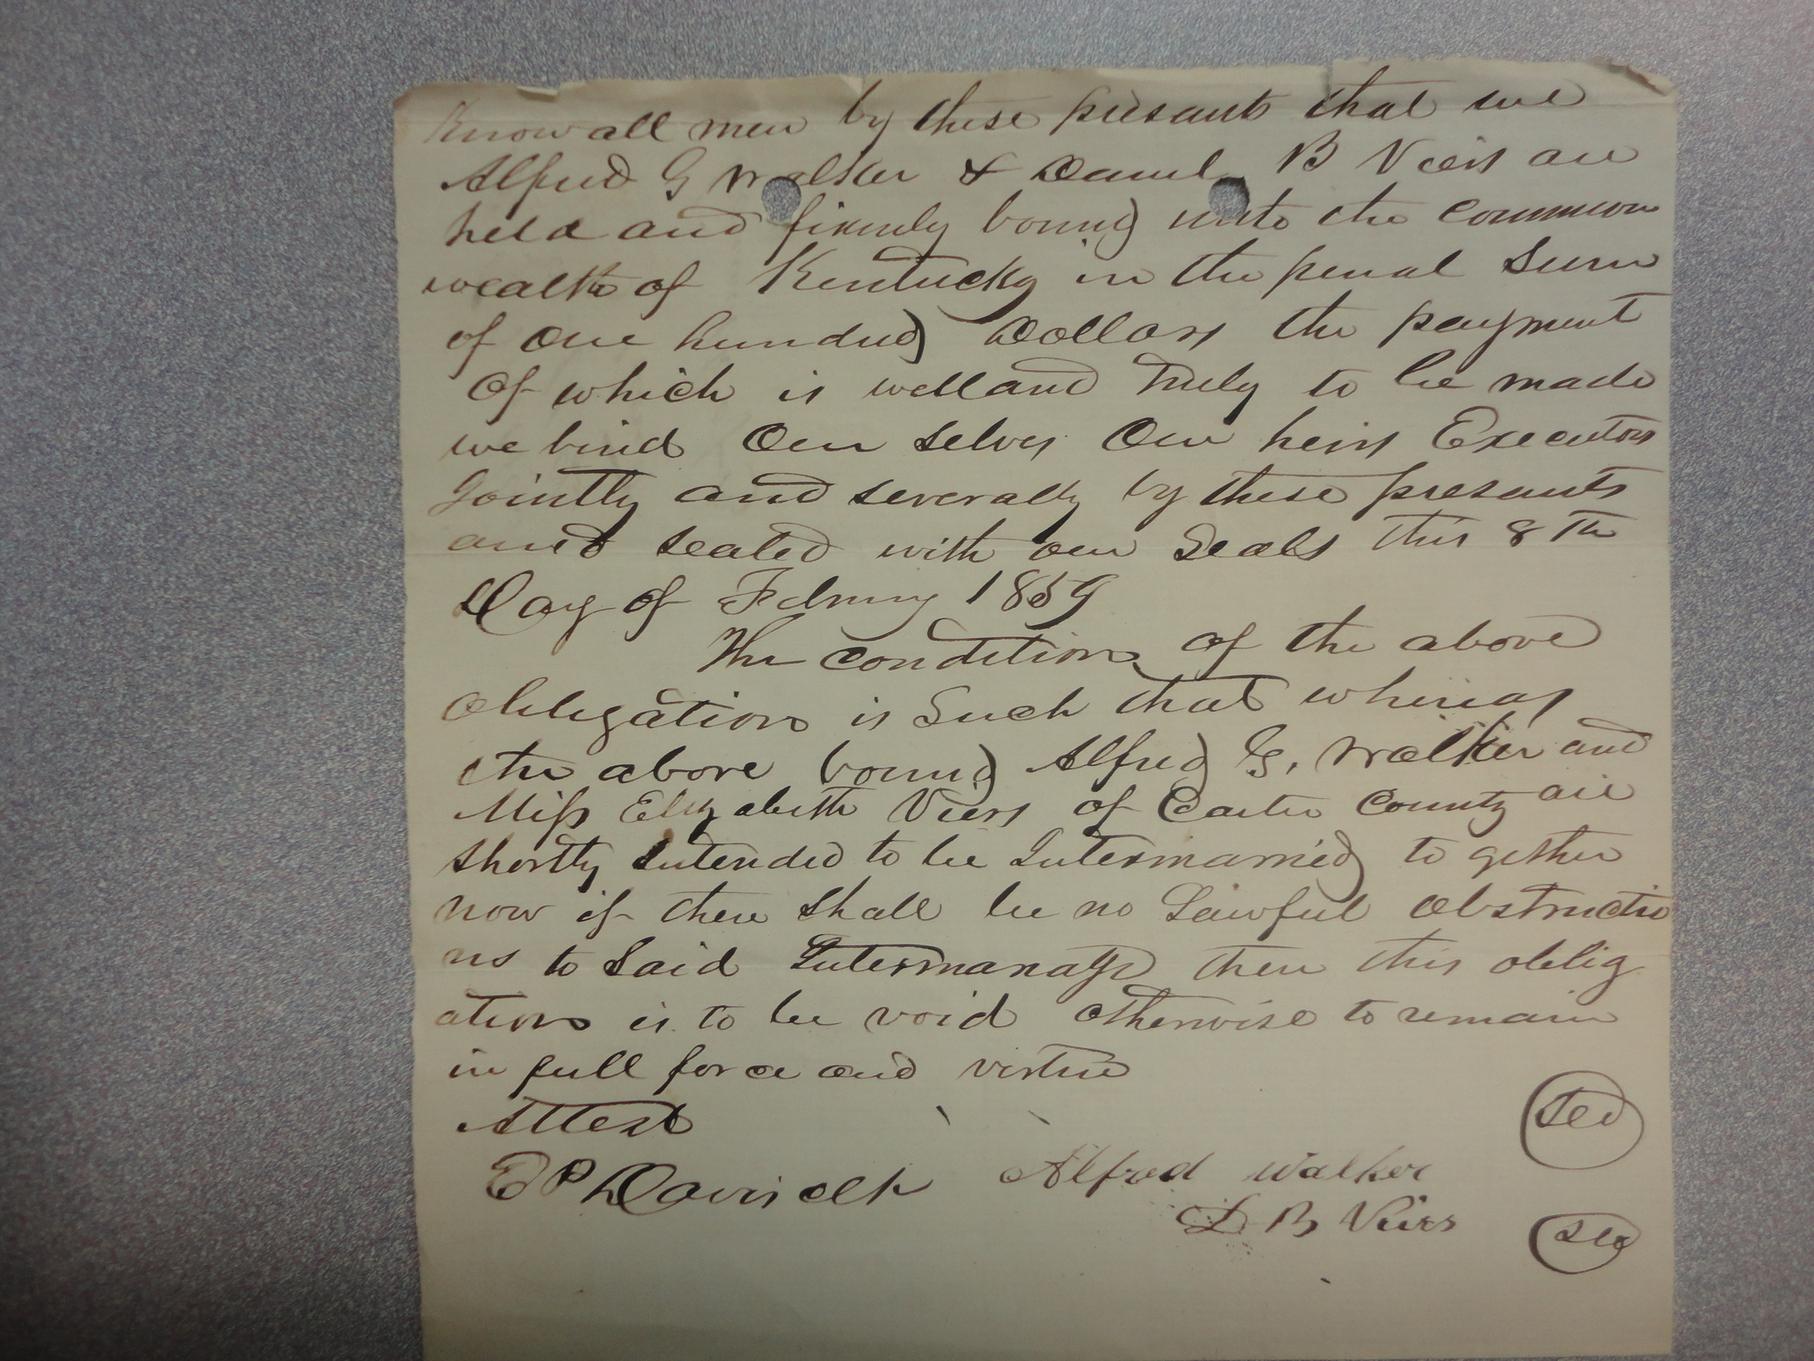 Know all men by these presants that we
Alfred G Walker & Daniel B Viers are
held and firmly bound unto the common
wealth of Kentucky in the penal Sum
of one hundred Dollars the payment
of which is well and truly to be made
we bind Our selves Our heirs Executors
Jointly and severally by these presants
and sealed with our Seals this 8th
Day of Februry 1859
The condition of the above
obligation is Such that whereas
the above bound Alfred G. Walker and
Miss Elizabeth Viers of Carter County are
shortly Intended to be Intermarried to gether
now if there shall be no Lawful obstructio
ns to Said Intermarrage then this oblig
ation is to be void otherwise to remain
in full force and virtue
Attest
E P Davis clk Alfred Walker
D B Viers